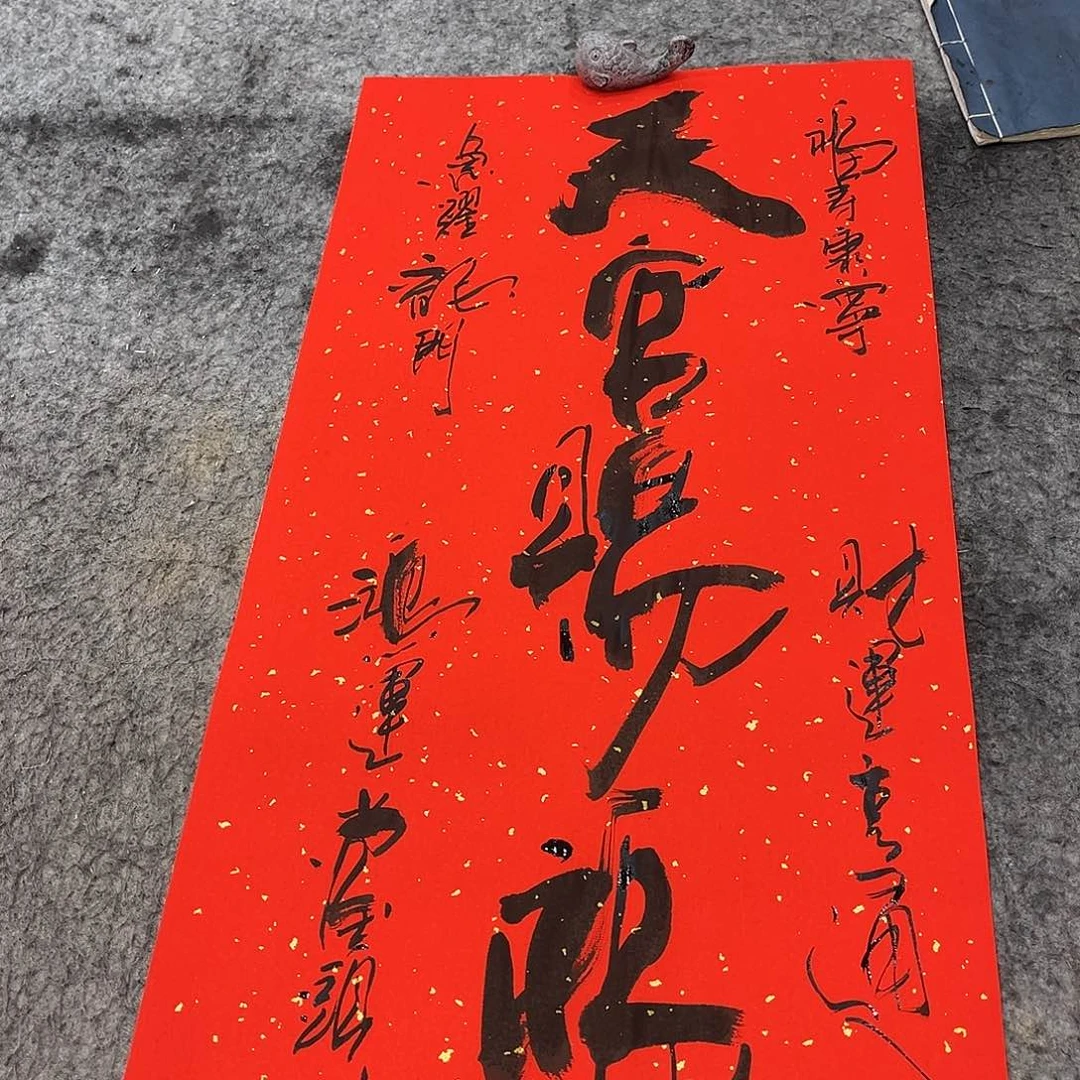 福寿康寧
財運亨通
天官賜福
魚躍龍門
鴻運當頭